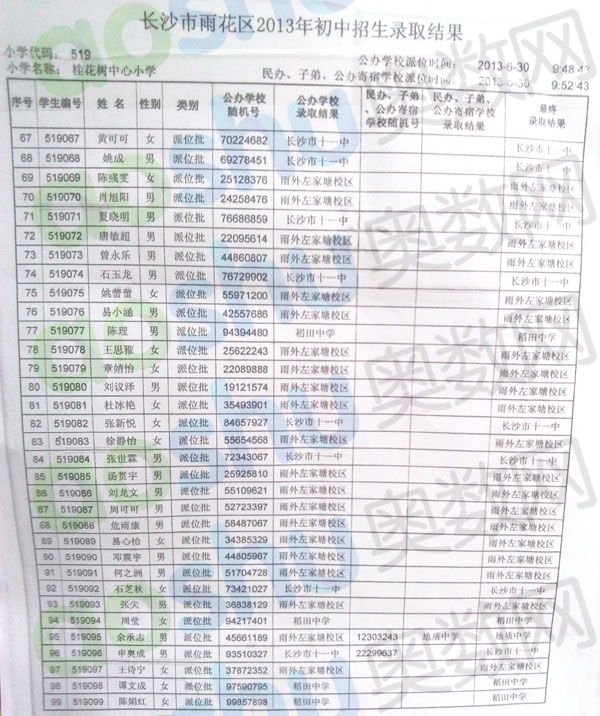 长沙市雨花区2013年初中招生录取结果
小学代码: 519 公办学校派位时间: 2013-6-30 9:48:43
小学名称: 桂花树中心小学 民办、子弟、公办寄宿学校派位时间: 2013-6-30 9:52:43
序号 学生编号 姓名 性别 类别 公办学校随机号 公办学校录取结果 民办、子弟、公办寄宿学校随机号 民办、子弟、公办寄宿学校录取结果 最终录取结果
67 519067 黄可可 女 派位批 70224682 长沙市十一中 长沙市十一中
68 519068 姚成 男 派位批 69278451 长沙市十一中 长沙市十一中
69 519069 陈彧雯 女 派位批 25128376 雨外左家塘校区 雨外左家塘校区
70 519070 肖旭阳 男 派位批 24258476 雨外左家塘校区 雨外左家塘校区
71 519071 夏晓明 男 派位批 76686859 长沙市十一中 长沙市十一中
72 519072 唐敏超 男 派位批 22095614 雨外左家塘校区 雨外左家塘校区
73 519073 曾永乐 男 派位批 44860807 雨外左家塘校区 雨外左家塘校区
74 519074 石玉龙 男 派位批 76729902 长沙市十一中 长沙市十一中
75 519075 姚蕾蕾 女 派位批 55971200 雨外左家塘校区 雨外左家塘校区
76 519076 易小涵 男 派位批 42557686 雨外左家塘校区 雨外左家塘校区
77 519077 陈理 男 派位批 94394480 稻田中学 稻田中学
78 519078 王思雅 女 派位批 25622243 雨外左家塘校区 雨外左家塘校区
79 519079 章婧怡 女 派位批 22089888 雨外左家塘校区 雨外左家塘校区
80 519080 刘议泽 男 派位批 19121574 雨外左家塘校区 雨外左家塘校区
81 519081 杜冰艳 女 派位批 35493901 雨外左家塘校区 雨外左家塘校区
82 519082 张新悦 女 派位批 84657927 长沙市十一中 长沙市十一中
83 519083 徐静怡 女 派位批 55654568 雨外左家塘校区 雨外左家塘校区
84 519084 张世霖 男 派位批 72343067 长沙市十一中 长沙市十一中
85 519085 汤贯宇 男 派位批 25925810 雨外左家塘校区 雨外左家塘校区
86 519086 刘龙文 男 派位批 55109621 雨外左家塘校区 雨外左家塘校区
87 519087 周可可 男 派位批 52723397 雨外左家塘校区 雨外左家塘校区
88 519088 危雨康 男 派位批 58487067 雨外左家塘校区 雨外左家塘校区
89 519089 易心怡 女 派位批 34385329 雨外左家塘校区 雨外左家塘校区
90 519090 邓震宇 男 派位批 44805967 雨外左家塘校区 雨外左家塘校区
91 519091 何之洲 男 派位批 51704728 雨外左家塘校区 雨外左家塘校区
92 519092 石芝秋 女 派位批 73421027 长沙市十一中 长沙市十一中
93 519093 张尖 男 派位批 36838129 雨外左家塘校区 雨外左家塘校区
94 519094 周莹 女 派位批 94217401 稻田中学 稻田中学
95 519095 余承志 男 派位批 45661189 雨外左家塘校区 12303243 地质中学 地质中学
96 519096 申奥成 男 派位批 93510327 长沙市十一中 22299637 长沙市十一中
97 519097 王诗宁 女 派位批 37872352 雨外左家塘校区 雨外左家塘校区
98 519098 谭文成 女 派位批 97590795 稻田中学 稻田中学
99 519099 陈娟红 女 派位批 99857898 稻田中学 稻田中学
aoshu 奥数网